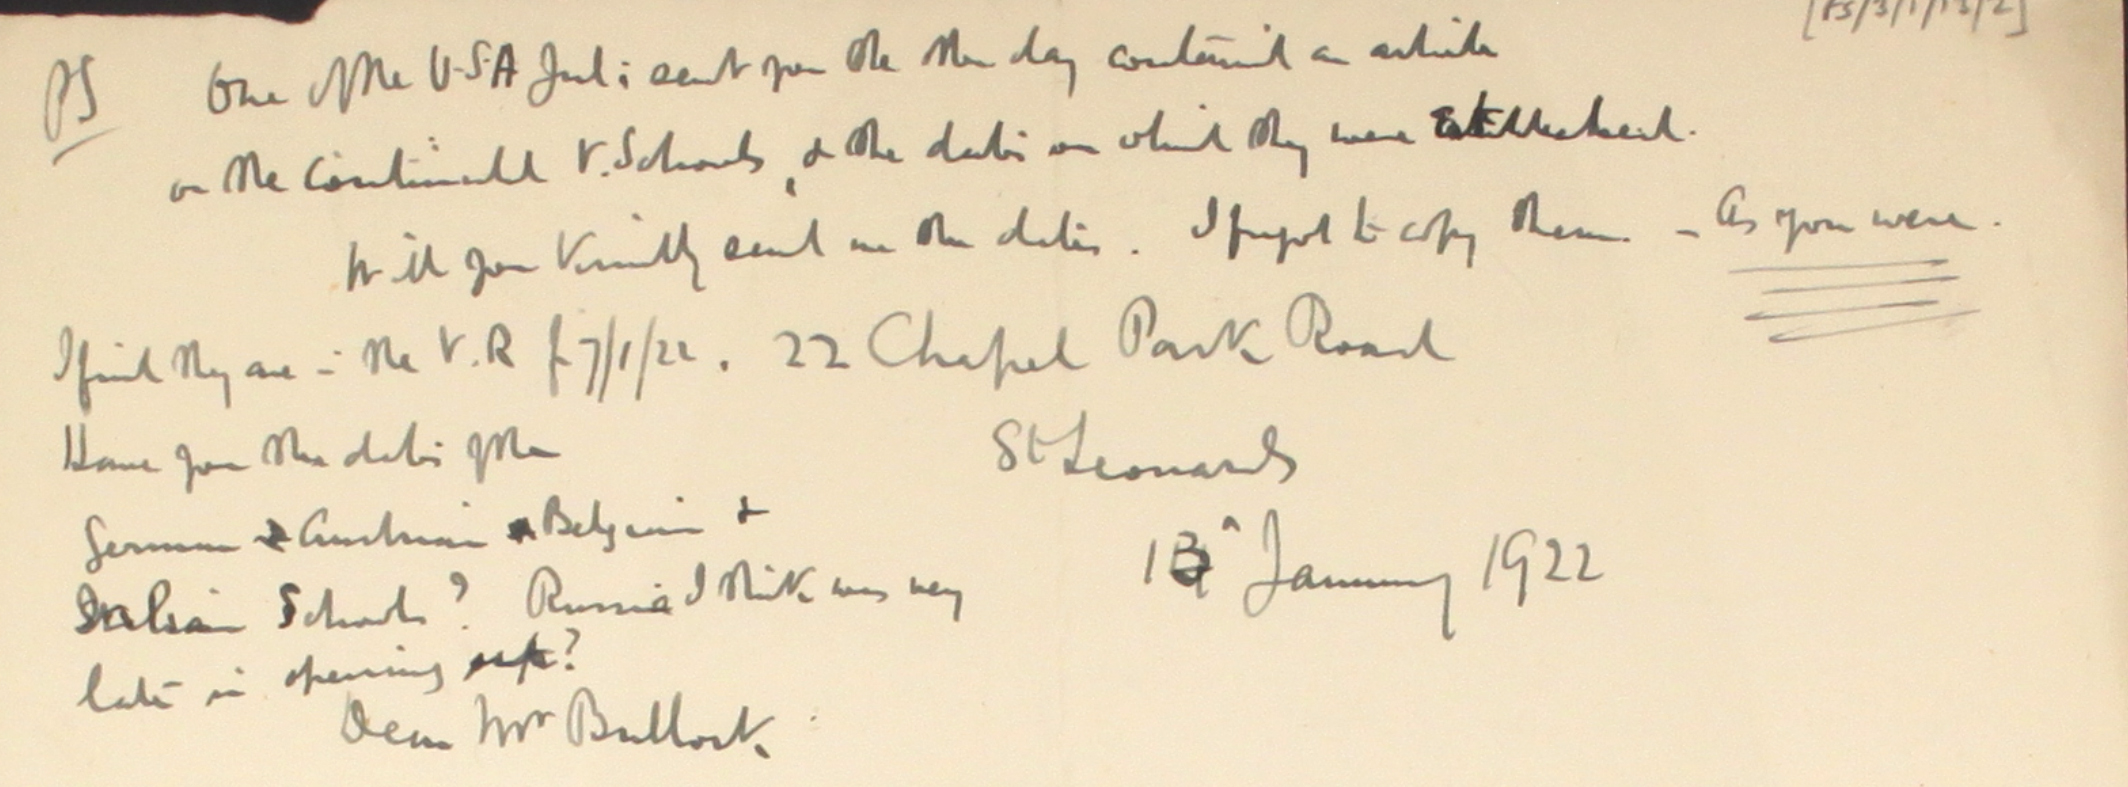 [FS/3/1/13/2]
PS One of the U.S.A Jnls i sent you the other day contained an article
on the Continental V. Schools, & the dates on which they were established.
Will you kindly send me the dates. I forgot to copy them. - As you were.
I find they are in the V.R f. 7/1/22. 22 Chapel Park Road
Have you the dates of the
St Leonards
German & Austrian & Belgian &
13th January 1922
Italian Schools? Russia I think was very
late in opening up?
Dear Mr Bullock.